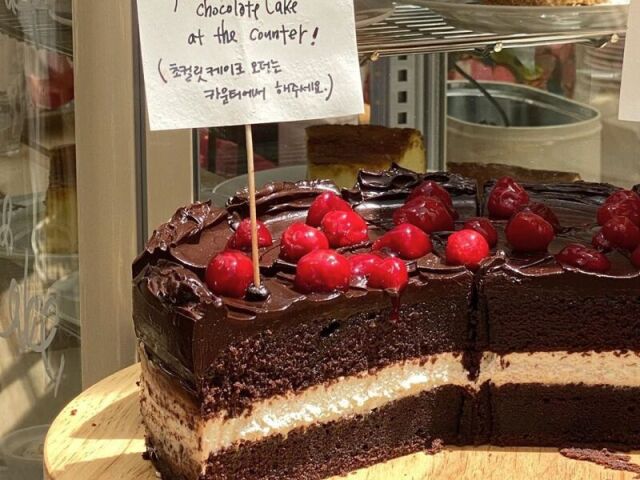 chocolate Cake
at the counter!
(초컬릿케이크 오더는
카운터에서 해주세요.)